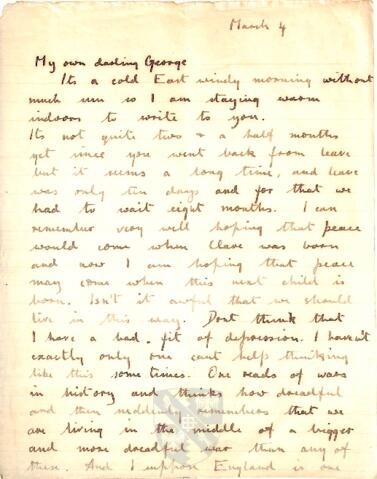 March 4
My own darling George
Its a cold East windy morning without
much sun so I am staying warm
indoors to write to you.
Its not quite two & a half months
yet since you went back from leave
but it seems a long time, and leave
was only ten days and for that we
had to wait eight months. I can
remember very well hoping that peace
would come when Clare was born
and now I am hoping that peace
may come when this next child is
born. Isn't it awful that we should
live in this way. Dont think that
I have a bad fit of depression. I haven't
exactly only one cant help thinking
like this some times. One reads of wars
in history and thinks how dreadful
and then suddenly remembers that we
are living in the middle of a bigger
and more dreadful war than any of
these. And I suppose England is one